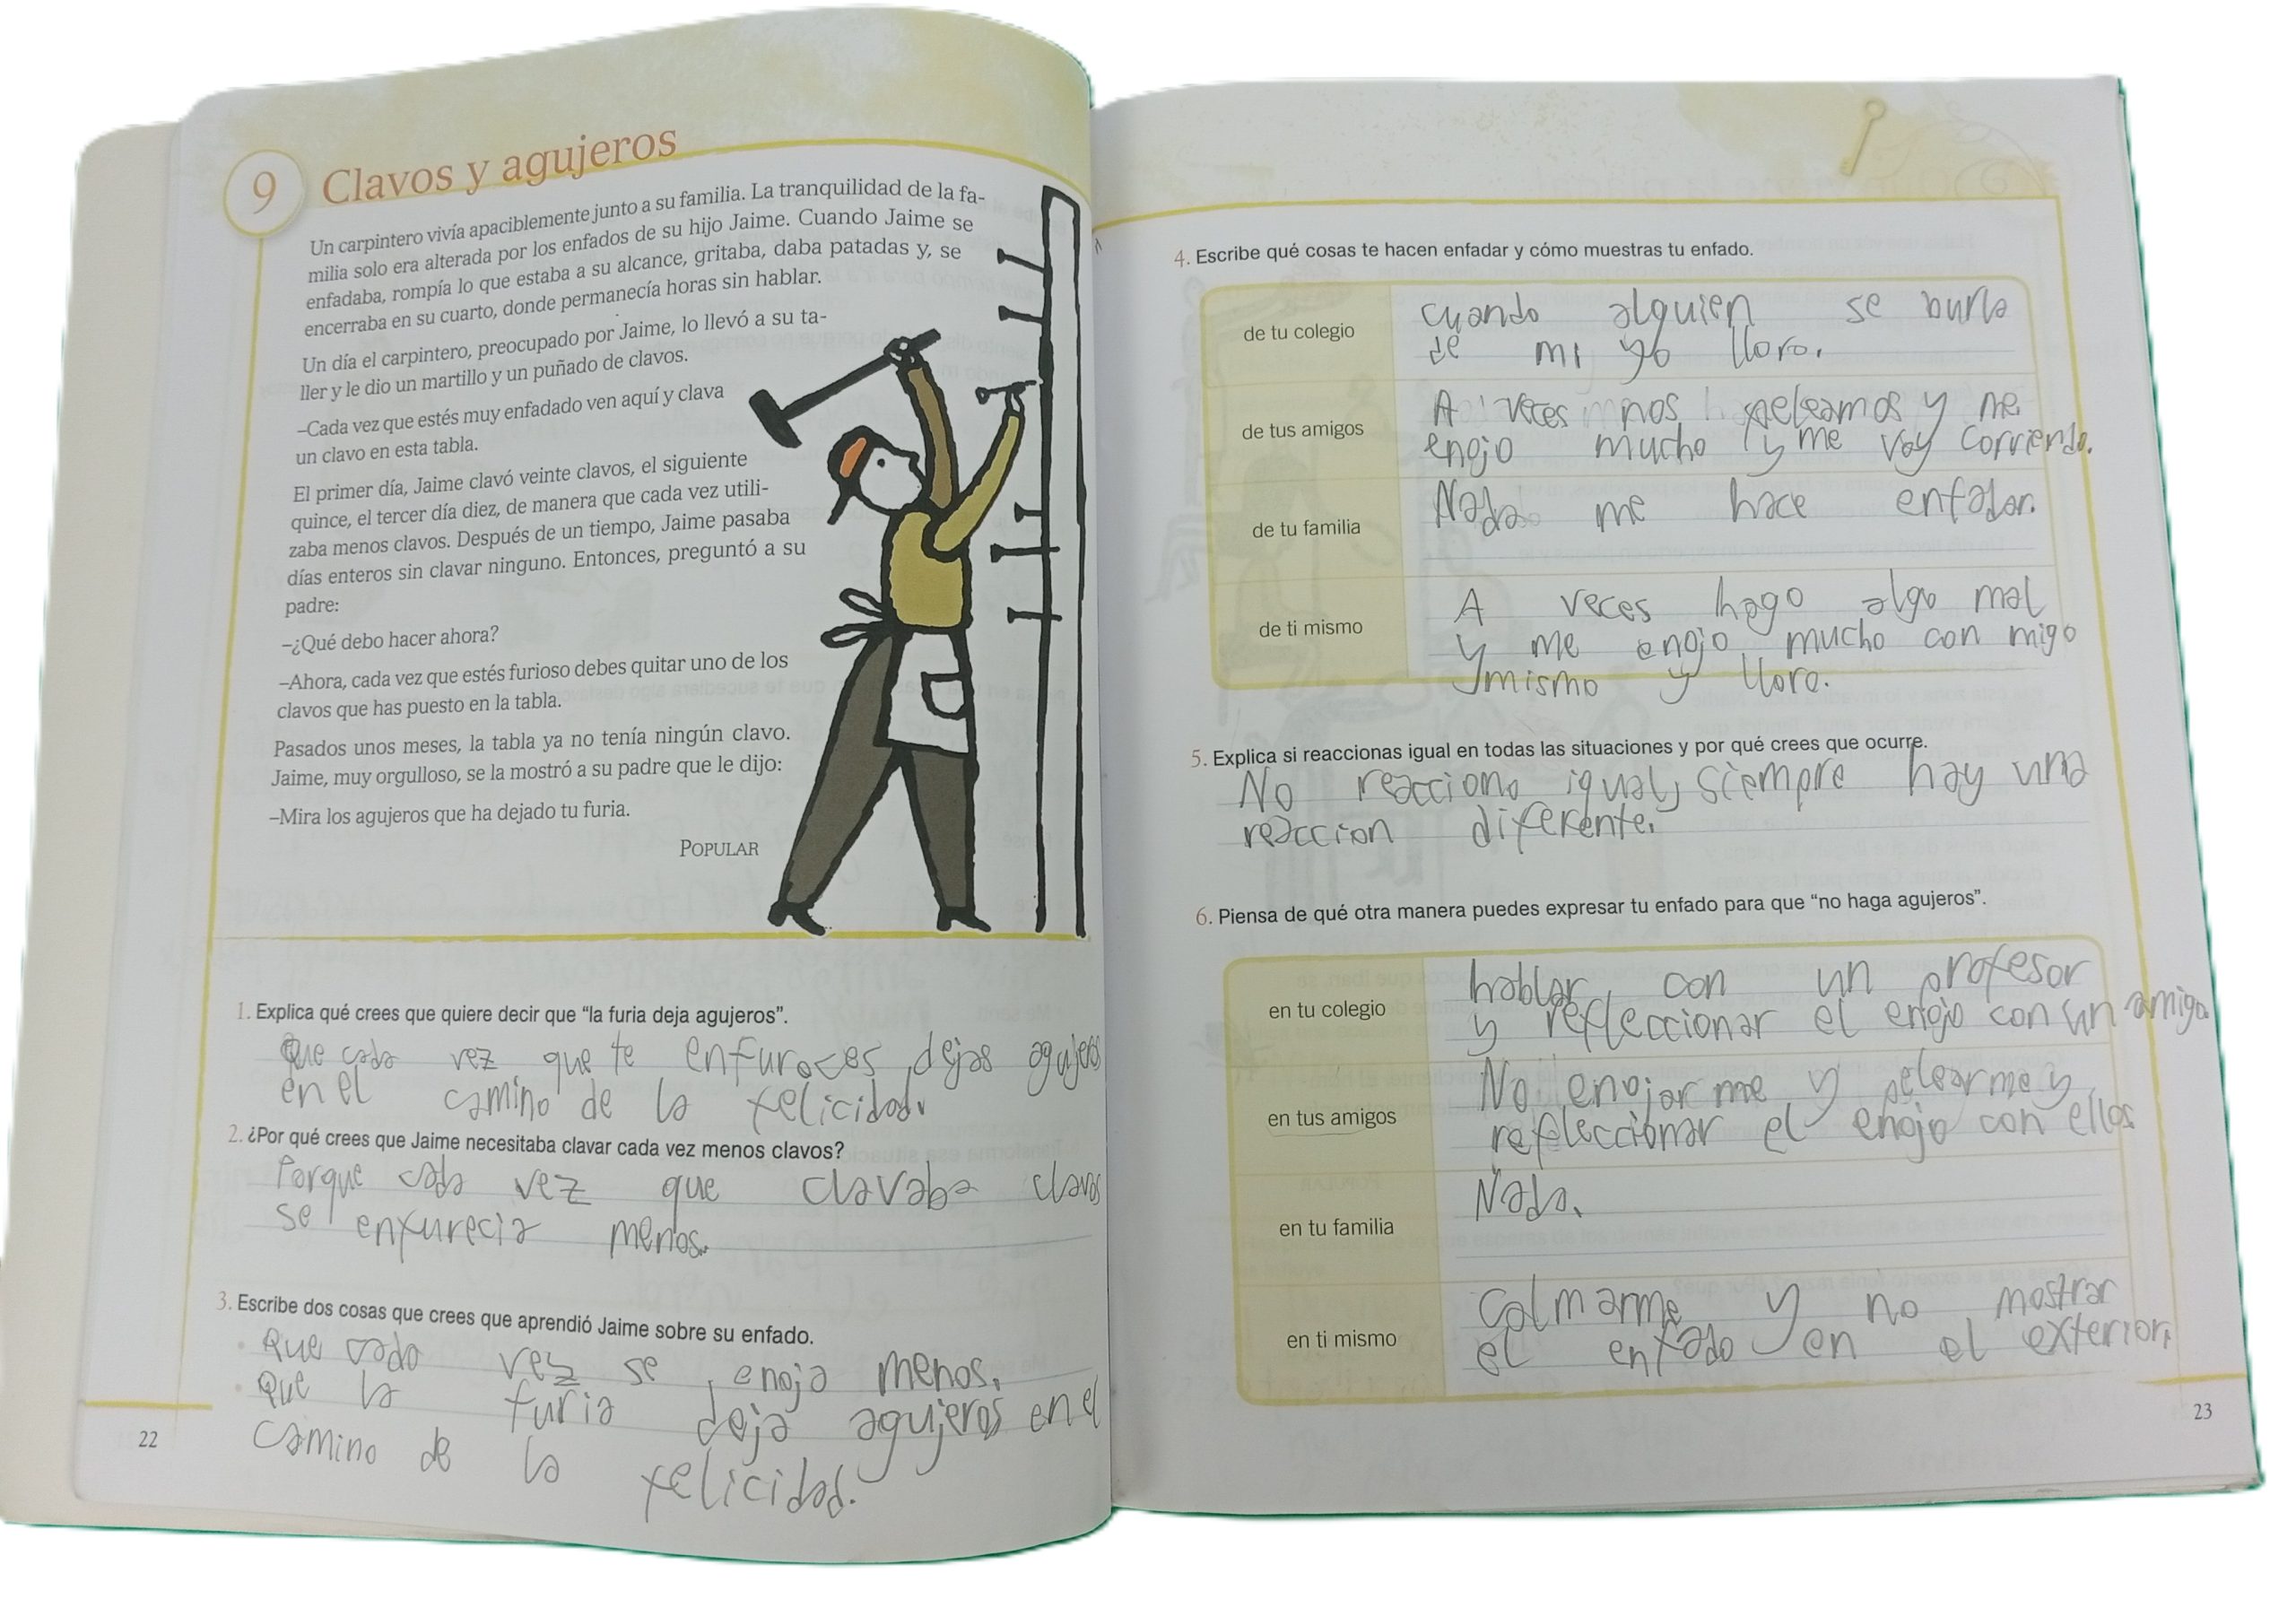 9 Clavos y agujeros
Un carpintero vivía apaciblemente junto a su familia. La tranquilidad de la fa-
milia solo era alterada por los enfados de su hijo Jaime. Cuando Jaime se
enfadaba, rompía lo que estaba a su alcance, gritaba, daba patadas y, se
encerraba en su cuarto, donde permanecía horas sin hablar.
Un día el carpintero, preocupado por Jaime, lo llevó a su ta-
ller y le dio un martillo y un puñado de clavos.
–Cada vez que estés muy enfadado ven aquí y clava
un clavo en esta tabla.
El primer día, Jaime clavó veinte clavos, el siguiente
quince, el tercer día diez, de manera que cada vez utili-
zaba menos clavos. Después de un tiempo, Jaime pasaba
días enteros sin clavar ninguno. Entonces, preguntó a su
padre:
–¿Qué debo hacer ahora?
–Ahora, cada vez que estés furioso debes quitar uno de los
clavos que has puesto en la tabla.
Pasados unos meses, la tabla ya no tenía ningún clavo.
Jaime, muy orgulloso, se la mostró a su padre que le dijo:
–Mira los agujeros que ha dejado tu furia.
POPULAR
1. Explica qué crees que quiere decir que “la furia deja agujeros”.
Que cada vez que te enfuroces dejas agujeros
en el camino de la felicidad.
2. ¿Por qué crees que Jaime necesitaba clavar cada vez menos clavos?
Porque cada vez que clavaba clavos
se enfurecia menos.
3. Escribe dos cosas que crees que aprendió Jaime sobre su enfado.
• Que cada vez se enoja menos.
• Que la furia deja agujeros en el
camino de la felicidad.
22
4. Escribe qué cosas te hacen enfadar y cómo muestras tu enfado.
de tu colegio
cuando alguien se burla
de mi yo lloro.
de tus amigos
A veces nos peleamos y me
enojo mucho y me voy corriendo.
de tu familia
Nada me hace enfadar.
de ti mismo
A veces hago algo mal
y me enojo mucho con migo
mismo y lloro.
5. Explica si reaccionas igual en todas las situaciones y por qué crees que ocurre.
No reacciono igual, siempre hay una
reaccion diferente.
6. Piensa de qué otra manera puedes expresar tu enfado para que “no haga agujeros”.
en tu colegio
hablar con un profesor
y refleccionar el enojo con un amigo.
en tus amigos
No enojar me y pelearme y
refleccionar el enojo con ellos
en tu familia
Nada.
en ti mismo
Calmarme y no mostrar
el enfado en el exterior.
23